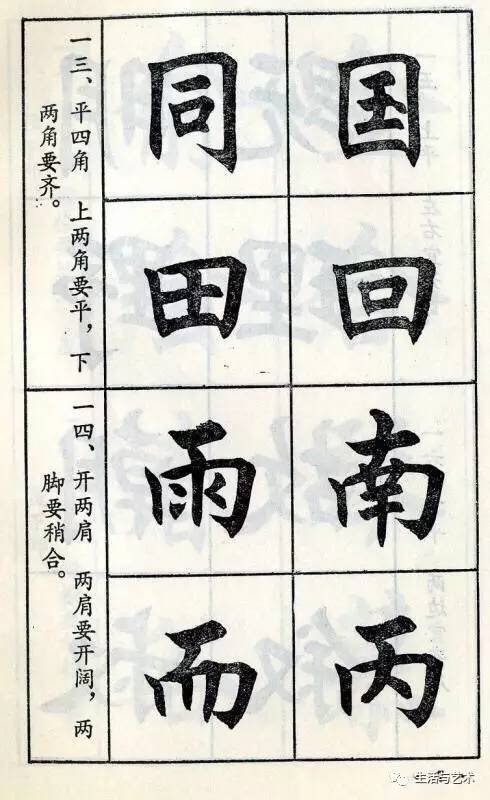 国回南丙
同田雨而
一三、平四角 上两角要平，下
两角要齐。
一四、开两肩 两肩要开阔，两
脚要稍合。
生活与艺术